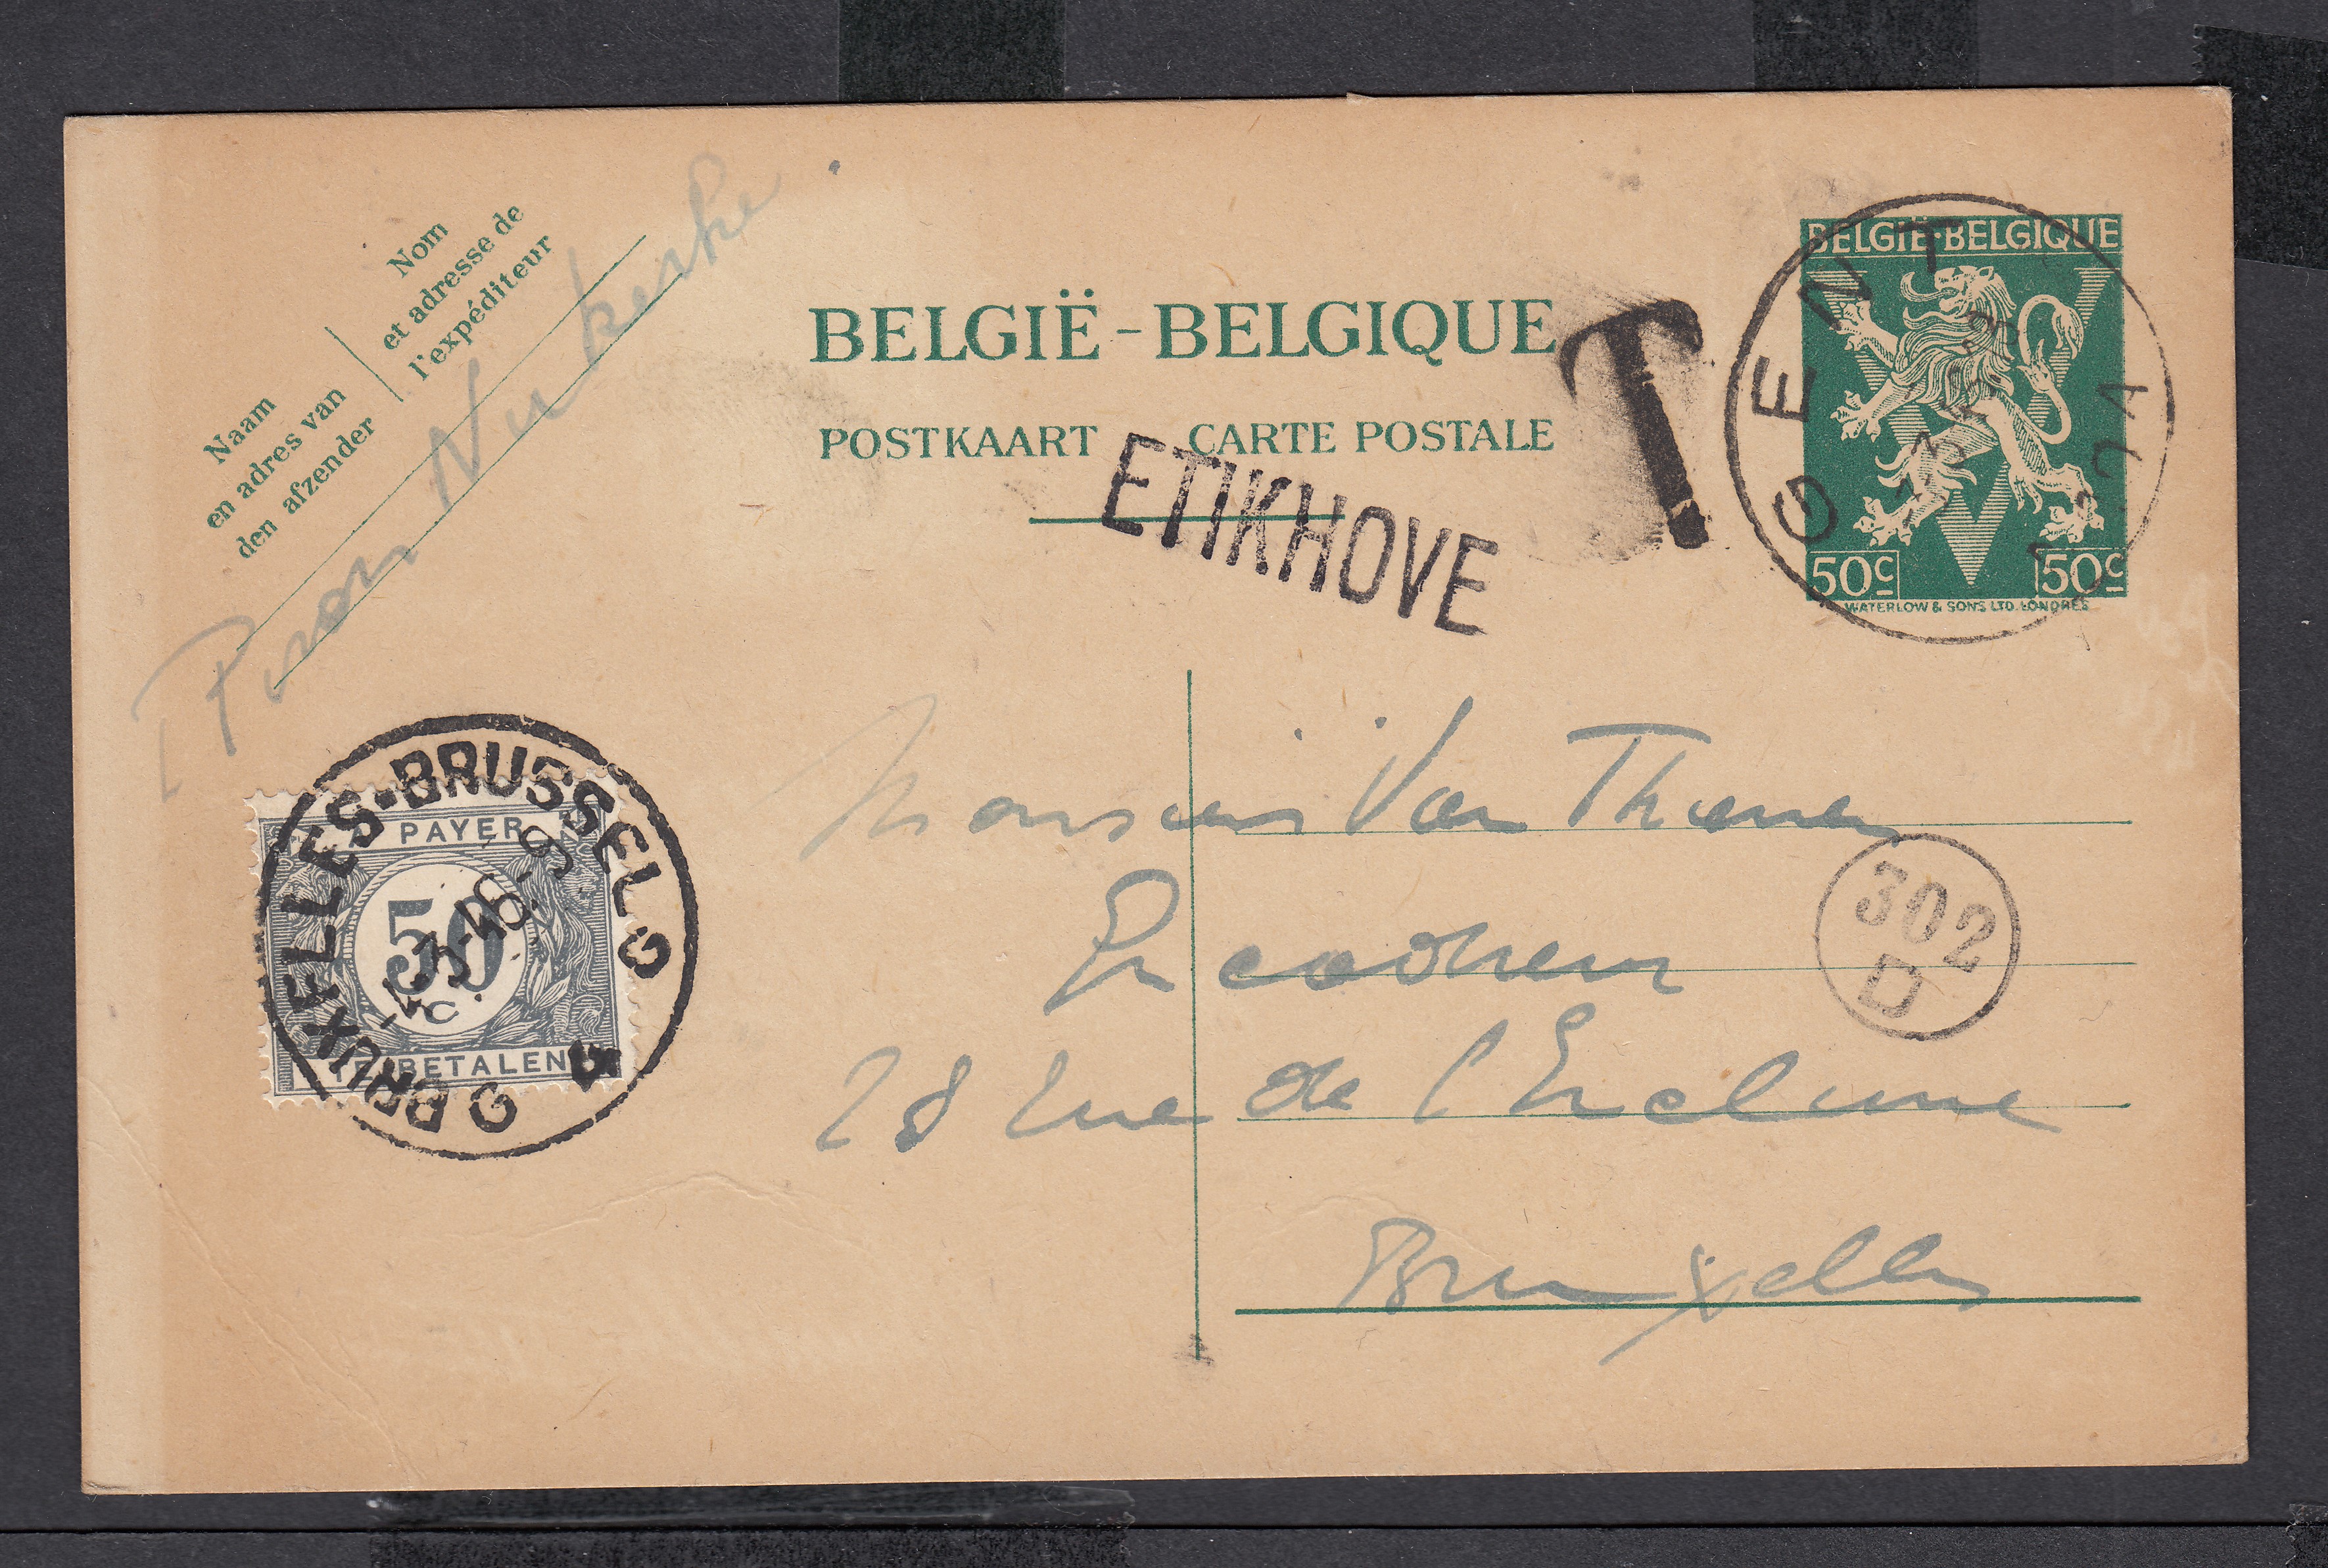 Nom
et adresse de
l'expéditeur
Naam
en adres van
den afzender
Piron Nukerke
BELGIË-BELGIQUE
POSTKAART CARTE POSTALE
ETIKHOVE
T
GENT
BELGIË·BELGIQUE
50c 50c
WATERLOW & SONS LTD. LONDRES
BRUXELLES-BRUSSEL
A PAYER
50
c.
TE BETALEN
Monsieur Van
28 rue de l'Enclume
Bruxelles
302
D